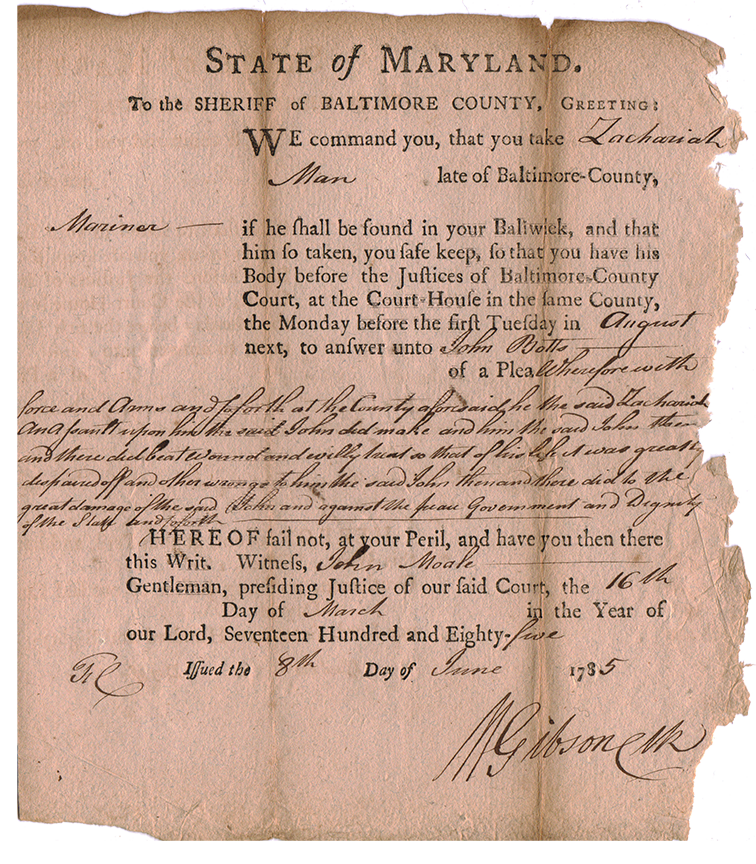 STATE of MARYLAND.
To the SHERIFF of BALTIMORE COUNTY, GREETING:
WE command you, that you take Zachariah
Man late of Baltimore-County,
Mariner — if he ſhall be found in your Bailwick, and that
him ſo taken, you ſafe keep, ſo that you have his
Body before the Juſtices of Baltimore-County
Court, at the Court-Houſe in the ſame County,
the Monday before the firſt Tueſday in August
next, to anſwer unto John Botts
of a Plea Wherefore with
force and Arms and ſo forth at the County aforesaid he the said Zachariah
An Aſsault upon him the said John did make and him the said John then
and there did beat wound and evilly treat so that of his life it was greatly
despaired off and other wrongs to him the said John then and there did to the
great damage of the said John and against the peace Government and Dignity
of the State and ſo forth
HEREOF fail not, at your Peril, and have you then there
this Writ. Witneſs, John Moale
Gentleman, preſiding Juſtice of our ſaid Court, the 16th
Day of March in the Year of
our Lord, Seventeen Hundred and Eighty-five
Iſſued the 8th Day of June 1785
Wm Gibson Clk